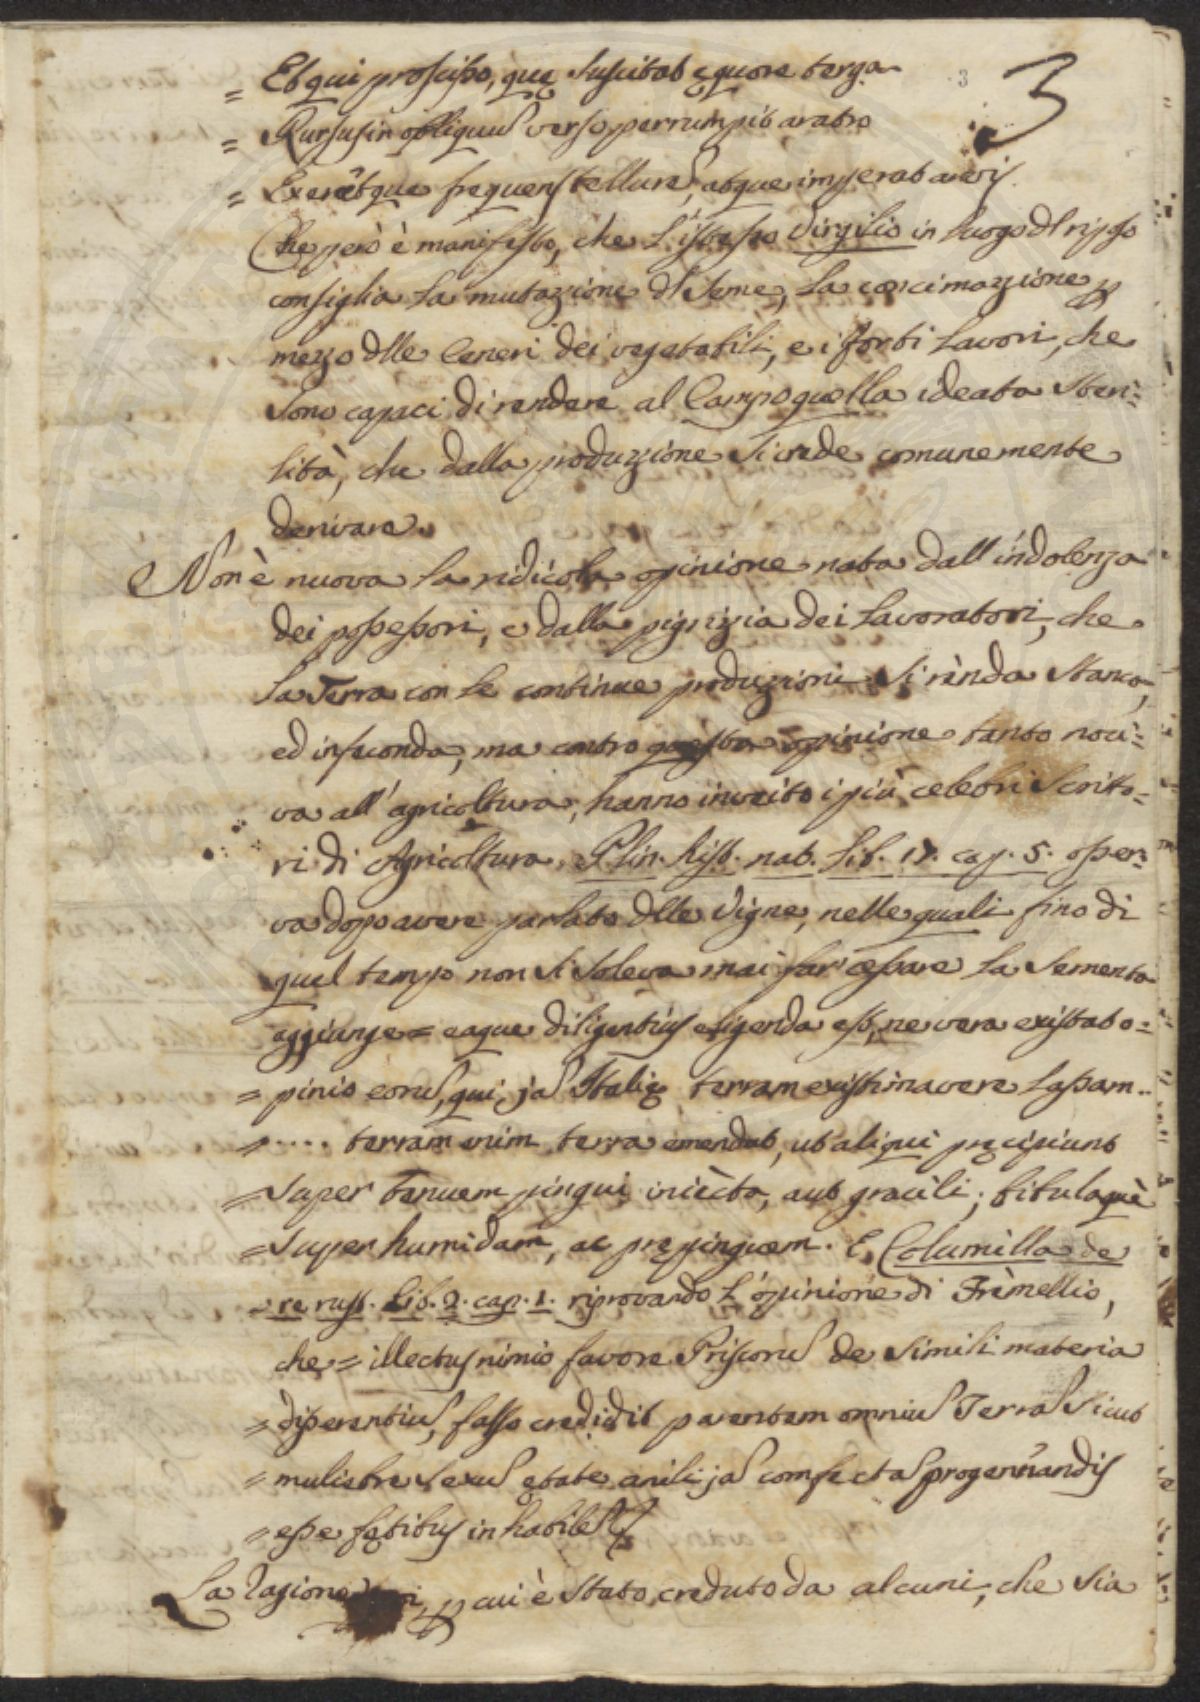 3 3
= Et qui proscisso, quę suscitat ęquore terga
= Rursus in obliquũ verso perrumpit aratro
= Exercẽtque frequens tellurẽ, atque imperat arvis.
Che però è manifesto, che l'istesso Virgilio in luogo dl riposo
consiglia la mutazione dl seme, la concimazione p
mezzo dlle Ceneri dei vegetabili, e i forti lavori, che
sono capaci di rendere al Campo quella ideata steri=
lità, che dalla produzione si crede comunemente
derivare.
Non è nuova la ridicola opinione nata dall'indolenza
dei possessori, e dalla pigrizia dei lavoratori, che
la Terra con le continue produzioni si renda stanca,
ed infeconda, ma contro questa opinione tanto noci=
va all'agricoltura, hanno inveito i più celebri scritto=
ri di Agricoltura. Plin. hist. nat. lib. 17. cap. 5. osser=
va dopo avere parlato dlle Vigne, nelle quali fino di
quel tempo non si soleva mai far cessare la sementa
aggiunge = eaque diligentius eligenda est, ne vera existat o=
= pinio eorũ, qui jã Italię terram existimavere lassam..
= .... terram enim terra emendat, ut aliqui pręcipiunt
= super tenuem pingui iniecta, aut gracili, bibulaquè
= super humidam, ac prępinguem. E Columella de
= re rust. lib. 2. cap. 1. riprovando l'opinione di Trèmellio,
che = illectus nimio favore Priscorũ de simili materia
= disserentiũ, falso credidit parentem omniũ Terrã sicut
= muliebre sexũ ętate anili jã confectã progenerandis
= esse fętibus inhabilẽ
La ragione p cui è stato creduto da alcuni, che sia